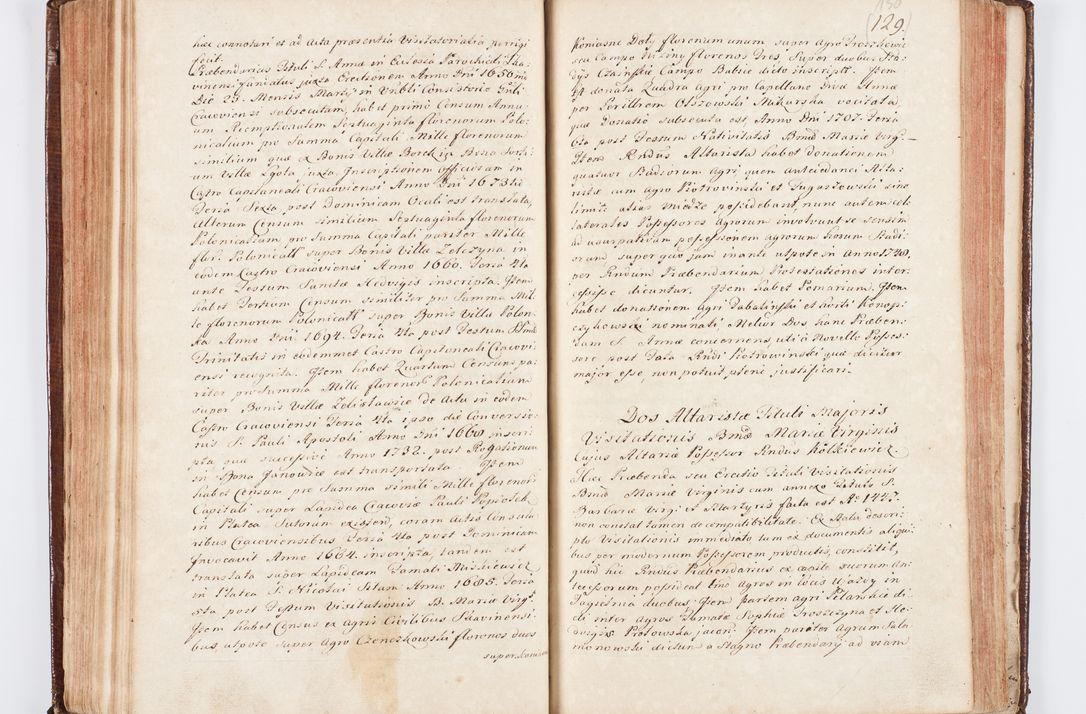 huc connotari et ad Acta præsentia Visitatorialia porrigi
fecit.
Præbendarius Tituli S. Annæ in Ecclesia Parochiali Ska-
vinensi fundatus juxta Erectionem Anno Dni 1656 in
Die 29. Mensis Martij in Consistorio Gnli
Cracoviensi subsecutam, habet primo Censum Annu-
um Reemptivalem Septuaginta florenorum Polo-
nicalium pro Summa Capitali Mille florenorum
similium quæ ex Bonis Villæ Borek in Bona
um Villæ Lgota juxta Inscriptionem officiosam in
Castro Capitaneali Cracoviensi Anno Dni 1673tio
Feria Sexta post Dominicam Oculi est translata,
Alterum Censum similium Septuaginta florenorum
Polonicalium pro Summa Capitali pariter Mille
flor. Polonicall super Bonis Villæ Zelczyna in
eodem Castro Cracoviensi Anno 1660. Feria 4ta
ante Festum Sanctæ Hedvigis inscripta. Item
habet Tertium Censum similiter pro Summa Mil-
le florenorum Polonicall super Bonis Villæ Polan-
ka Anno Dni 1694. Feria 4ta post Festum SSimæ
Trinitatis in eodemmet Castro Capitaneali Cracovi-
ensi recognita. Item habet Quartum Censum pa-
riter pro Summa Mille florenor Polonicalium
super Bonis Villæ Zelisławice de Actu in eodem
Castro Cracoviensi Feria 4ta ipso die Conversio-
nis S. Pauli Apostoli Anno Dni 1660 inscri-
pta quæ successive Anno 1732. post Rogationum
in Bona Janowice est transportata. Item
habet Censum pro Summa simili Mille florenor
Capitali super Lapidea Cracoviæ Pauli Popiołek
in Platea Sutorum existen, coram Actis Consula-
ribus Cracoviensibus Feria 4ta post Dominicam
Invocavit Anno 1664. inscripta, tandem est
translata super Lapideam Famati Miskiewicz
in Platea S. Nicolai Sitam Anno 1685. Feria
5ta post Festum Visitationis B. Mariæ Virgs.
Item habet Census ex agris Civilibus Skavinensi-
bus utpote super Agro Czenczkowski florenos duos
super

130
(129)
Koniasne Doły florenum unum super Agro Troszkowi-
seu Campo florenos Tres, Super duobus Sta-
dijs Campo Babice dicto inscript. Item
donata Quadra Agri pro Capellano Divæ Annæ
per Perillrem Olszowski Makurska vocitata,
quæ Donatio subsecuta est, Anno Dni 1707. Feria
6ta post Festum Nativitatis Bmæ Mariæ Virg.
Item Rndus Altarista habet donationem
quatuor Stadiorum Agri quem antecedanei Alta-
ristæ cum agro Piotrovinski et Lugaszowski sine
limite alias miedze possidebant, nunc autem col-
laterales Possessores Agrorum involvunt se sensim
ad usurpativam possessionem agrorum horum Stadi-
orum super quo jam inante utpote in Anno 1748,
per Rndum Præbendarium Protestationes inter-
cessisse dicuntur. Item habet Pomarium. Item
habet donationem agri Babaliński et horti Konop-
czykowski nominati Melior Dos hanc Præben-
dam S. Annæ concernens, uti a Novello Posses-
sore post Fata Rndi Piotrowinski quæ dicitur
major esse, non potuit plene justificari.

Dos Altaristæ Tituli Majoris
Visitationis Bmæ Mariæ Virginis
Cujus Altariæ Possessor Rndus Kołkiewicz
Hæc Præbenda seu Erectio Tituli Visitationis
Bmæ Mariæ Virginis cum annexo Titulo S.
Barbaræ Virg: et Martyris facta est Ao 1447.
non constat tamen de compatibilitate. Ex Statu descri-
pto Visitationis immediato tum ex documentis aliqui-
bus per modernum Possessorem productis, constitit,
quod hic Rndus Præbendarius ex capite suorum An-
tecessorum possideat Imo Agros in locis Ujazdy in
Tugielnia duobus, Item partem agri Pilanskie di-
cti inter Agros Famatæ Sophiæ Troszczyna et He-
dvigis Protowska jacen. Item pariter Agrum Sala-
monowski dictum a Stagno Præbendarij ad viam